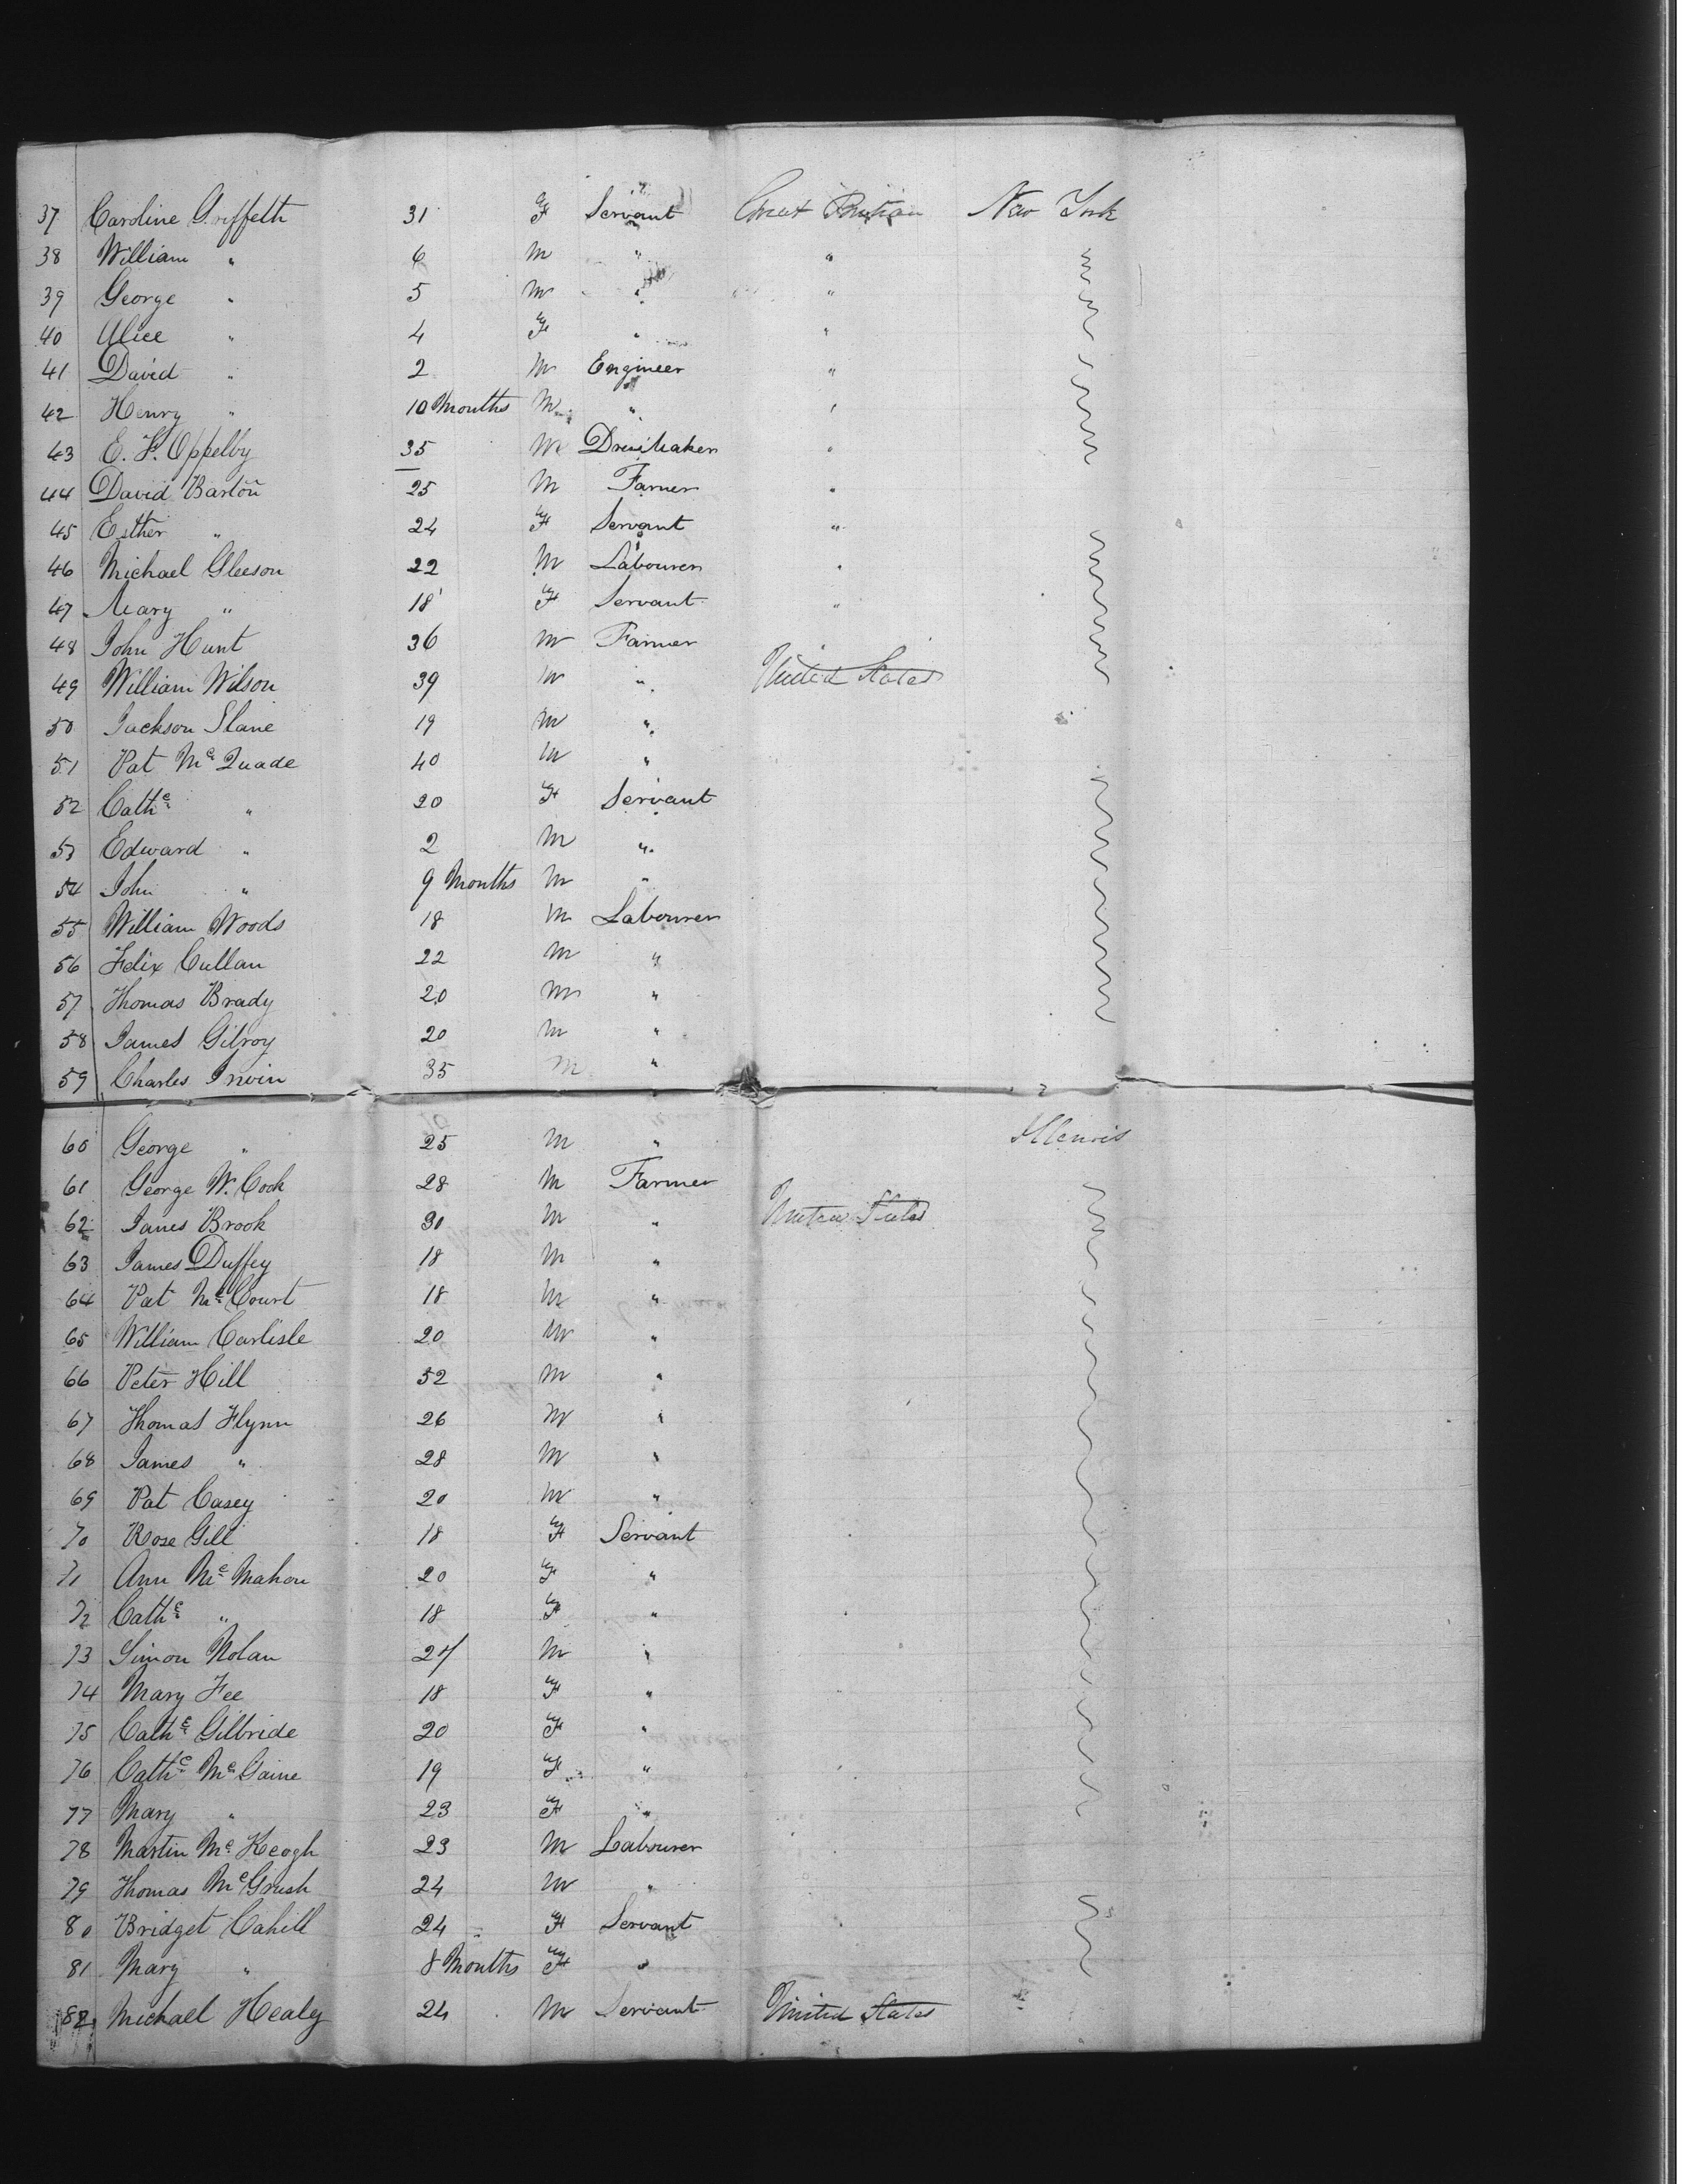 37 Caroline Griffeth 31 F Servant Great Britian New York
38 William " 6 M " "
39 George " 5 M " "
40 Alice " 4 F " "
41 David " 2 M Engineer "
42 Henry " 10 Months M " "
43 E. F. Oppelby 35 M DressMaker "
44 David Barton 25 M Farmer "
45 Esther " 24 F Servant "
46 Michael Gleeson 22 M Labourer "
47 Mary " 18 F Servant "
48 John Hunt 36 M Farmer "
49 William Wilson 39 M " United States
50 Jackson Slane 19 M "
51 Pat Mc Quade 40 M "
52 Cathe " 20 F Servant
53 Edward " 2 M "
54 John " 9 Months M "
55 William Woods 18 M Labourer
56 Felix Cullan 22 M "
57 Thomas Brady 20 M "
58 James Gilroy 20 M "
59 Charles Irwin 35 M "
60 George " 25 M " Illenois
61 George W. Cook 28 M Farmer
62 James Brook 30 M " United States
63 James Duffey 18 M "
64 Pat Mc Court 18 M "
65 William Carlisle 20 M "
66 Peter Hill 52 M "
67 Thomas Flynn 26 M "
68 James " 28 M "
69 Pat Casey 20 M "
70 Rose Gill 18 F Servant
71 Ann Mc Mahon 20 F "
72 Cathe " 18 F "
73 Simon Nolan 27 M "
74 Mary Fee 18 F "
75 Cathe Gilbride 20 F "
76 Cathe Mc Gaine 19 F "
77 Mary " 23 F "
78 Martin Mc Keogh 23 M Labourer
79 Thomas Mc Grush 24 M "
80 Bridget Cahill 24 F Servant
81 Mary " 8 Months F "
82 Michael Healey 24 M Servant United States